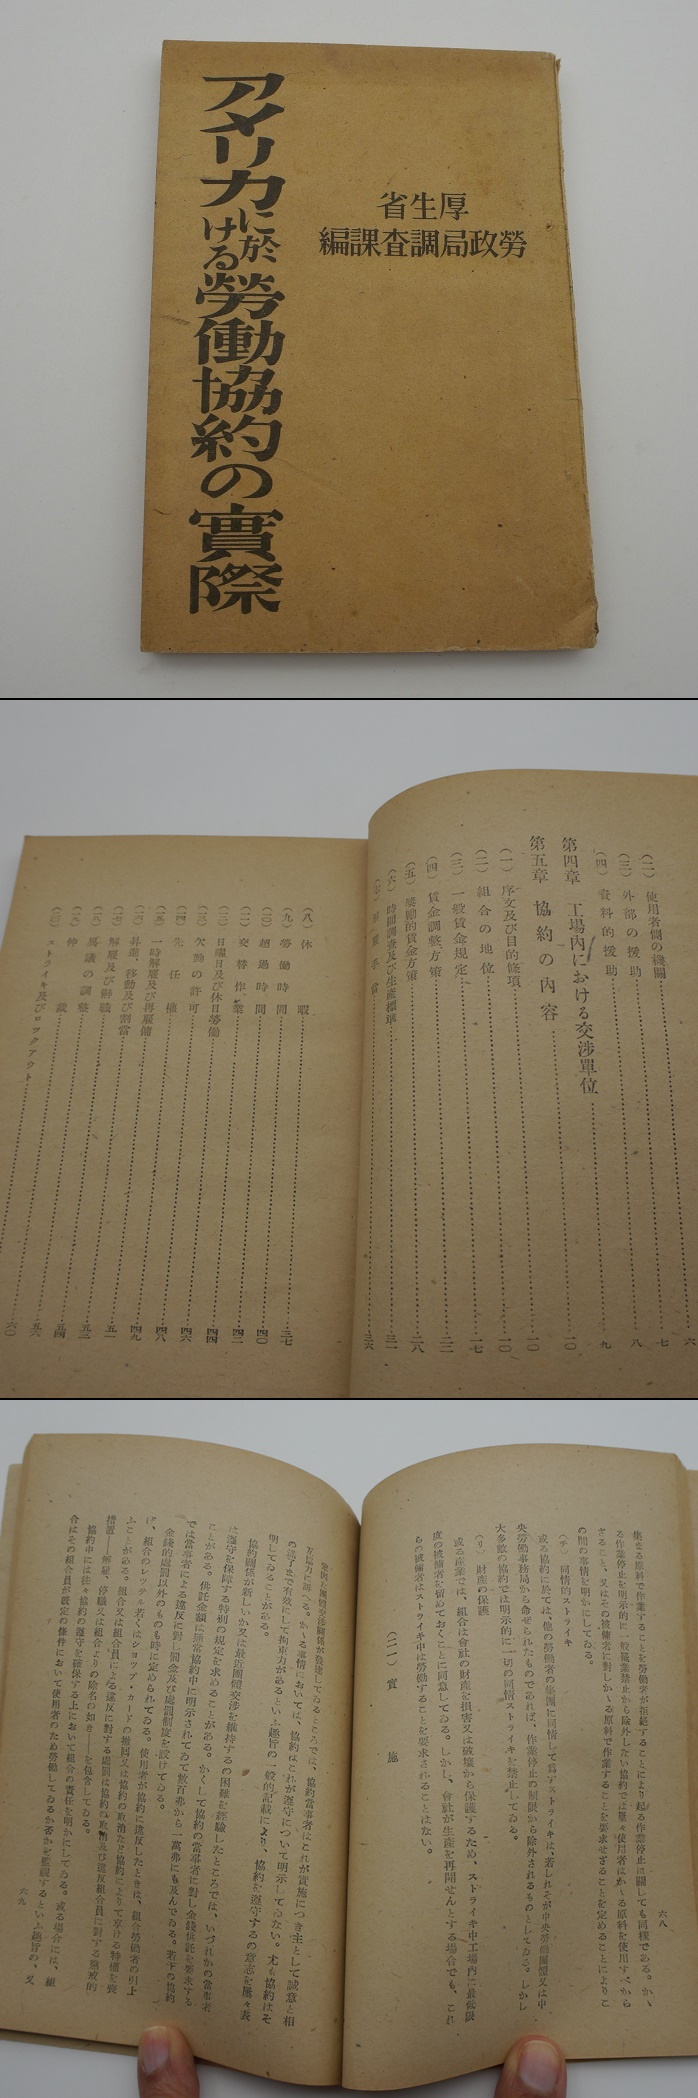 アメリカに於ける勞働協約の實際
厚生省
勞政局調査課編
(二) 使用者側の機關 七
(三) 外部の援助 八
(四) 資料的援助 九
第四章 工場內における交涉單位 一〇
第五章 協約の內容 一〇
(一) 序文及び目的條項 一〇
(二) 組合の地位 一七
(三) 一般賃金規定 二三
(四) 賃金調整方策 二八
(五) 奬勵的賃金方策 三一
(六) 時間調査及び生產標準 三六
(八) 休暇 三七
(九) 勞働時間 四〇
(一〇) 超過時間 四二
(一一) 交替作業 四四
(一二) 日曜日及び休日勞働
(一三) 欠勤の許可 四六
(一四) 先任權 四八
(一五) 一時解雇及び再雇傭 四九
(一六) 昇進、移動及び割當 五一
(一七) 解雇及び辭職 五二
(一八) 異議の調整 五四
(一九) 仲裁 五六
(二〇) ストライキ及びロックアウト 六〇
六八
集まる原料で作業することを勞働者が拒絕することにより起る作業停止に關しても同樣である。かゝ
る作業停止を明示的に一般罷業禁止から除外しない協約では屢々使用者はかゝる原料を使用すべから
ざること、又はその被傭者に對しかゝる原料で作業することを要求せざることを定めることによりこ
の間の事情を明かにしてゐる。
(チ) 同情的ストライキ
或る協約に於ては、他の勞働者の集團に同情して爲すストライキは、若しそれが中央勞働團體又は中
央勞働事務局から命ぜられたものであれば、作業停止の制限から除外されるものとしてゐる。しかし
大多數の協約では明示的に一切の同情ストライキを禁止してゐる。
(リ) 財產の保護
或る產業では、組合は會社の財產を損害又は破壞から保護するため、ストライキ中工場內に最低限
度の被傭者を留めておくことに同意してゐる。しかし、會社が生產を再開せんとする場合でも、これ
らの被傭者はストライキ中は勞働することを要求されることはない。
(二一) 實施
鞏固な團體交涉關係が發達してゐるところでは、協約當事者はこれが實施につき主として誠意と相
互協力に訴へる。かゝる事情においては、協約はこれが遵守について明示してゐない。尤も協約はそ
の滿了まで有效にして拘束力があるといふ趣旨の一般的記載により、協約を遵守するの意志を屢々表
明してゐることがある。
協約關係が新しいか又は最近團體交涉を維持するの困難を經驗したところでは、いづれかの當事者
は遵守を保障する特別の規定を求めることがある。かくして協約の當事者に對し金錢供託を要求する
ことがある。供託金額は通常協約中に明示されてゐて數百弗から一萬弗にも及んでゐる。若干の協約
では當事者による違反に對し罰金及び處罰制度を設けてゐる。
金錢的處罰以外のものも時に定められてゐる。使用者が協約に違反したときは、組合勞働者の引上
げ、組合のレッテル若くはショップ・カードの撤囘又は協約の取消など協約によりて享ける特權を喪
ふことがある。組合又は組合員による違反に對する處罰は協約の取消及び違反組合員に對する懲戒的
措置――解雇、停職又は組合よりの除名の如き――を包含してゐる。
協約中には往々協約の遵守を確保する上において組合の責任を明かにしてゐる。或る場合には、組
合はその組合員が設定の條件において使用者のため勞働してゐるか否かを監視するといふ趣旨の、又
六九